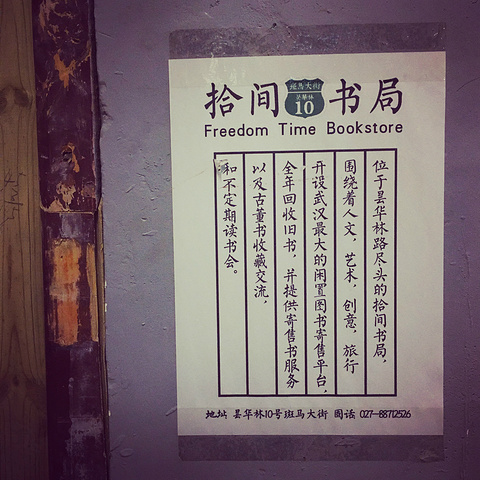 拾间 书局
斑马大街
昙华林
10
Freedom Time Bookstore
位于昙华林路尽头的拾间书局，
围绕着人文，艺术，创意，旅行
开设武汉最大的闲置图书寄售平台，
全年回收旧书，并提供寄售书服务
以及古董书收藏交流，
和不定期读书会。
地址 昙华林10号斑马大街 固话 027-88712526